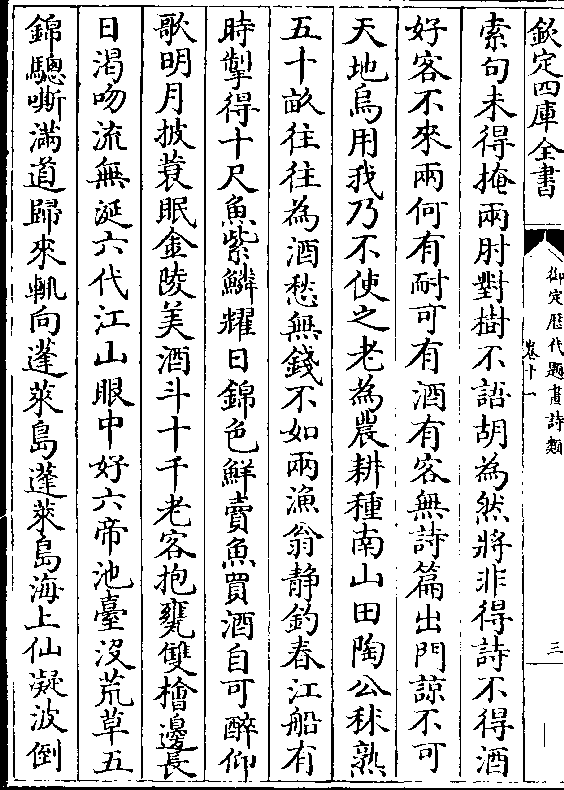 欽定四庫全書
御定歴代題畫詩類
卷十一
三
索句未得掩兩肘對樹不語胡為然將非得詩不得酒
好客不來兩何有耐可有酒有客無詩篇出門諒不可
天地烏用我乃不使之老為農耕種南山田陶公秫熟
五十畝往往為酒愁無錢不如兩漁翁静釣春江船有
時掣得十尺魚紫鱗耀日錦色鮮賣魚買酒自可醉仰
歌明月披蓑眠金陵美酒斗十千老客抱甕雙檜邊長
日渇吻流無涎六代江山眼中好六帝池臺沒荒草五
錦驄嘶滿道歸來軏向蓬萊島蓬萊島海上仙凝波倒